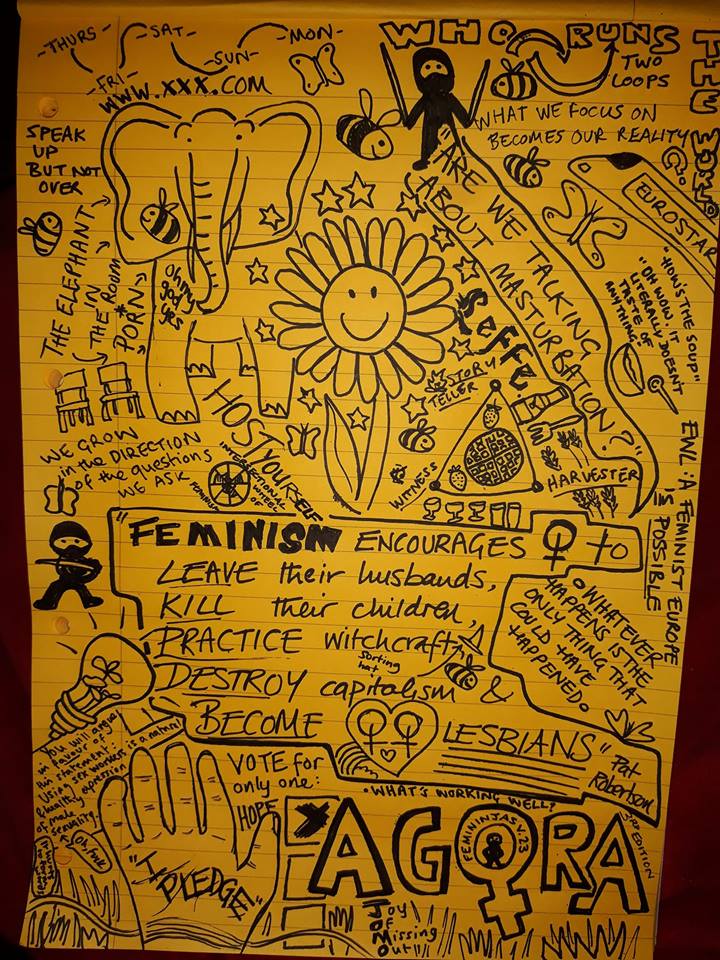 THURS
SAT
MON
FRI
SUN
www.xxx.com
WHO RUNS
TWO
LOOPS
FEW
WHAT WE FOCUS ON
BECOMES OUR REALITY
SPEAK
UP
BUT NOT
OVER
THE ELEPHANT
IN
THE ROOM
PORN*
oh my
god
yes
"ARE WE TALKING
ABOUT MASTURBATION?"
EUROSTAR
"HOW'S THE SOUP"
"OH WOW, IT
LITERALLY DOESN'T
TASTE OF
ANYTHING"
STORY
TELLER
WITNESS
HARVESTER
HOST YOURSELF
INTERSECTIONAL
WHEEL OF
FEMINISM
WE GROW
in the DIRECTION
of the questions
WE ASK
EWL: A FEMINIST EUROPE
IS POSSIBLE
"FEMINISM ENCOURAGES ♀ to
LEAVE their husbands,
KILL their children,
PRACTICE witchcraft,
Sorting
hat
DESTROY capitalism &
BECOME
LESBIANS"
Pat
Robertson
WHATEVER
HAPPENS IS THE
ONLY THING THAT
COULD HAVE
HAPPENED
You will argue
in favour of
this statement:
Using sex workers is a natural
& healthy expression
of male
sexuality.
VOTE for
only one:
HOPE
"I PLEDGE"
WHAT'S WORKING WELL?
AGORA
FEMININJAS V. 23
3RD EDITION
Joy
Of
Missing
Out!!